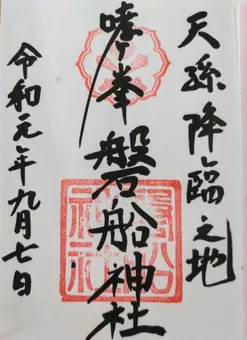 天孫降臨之地
哮ヶ峯
磐船神社
令和元年九月七日